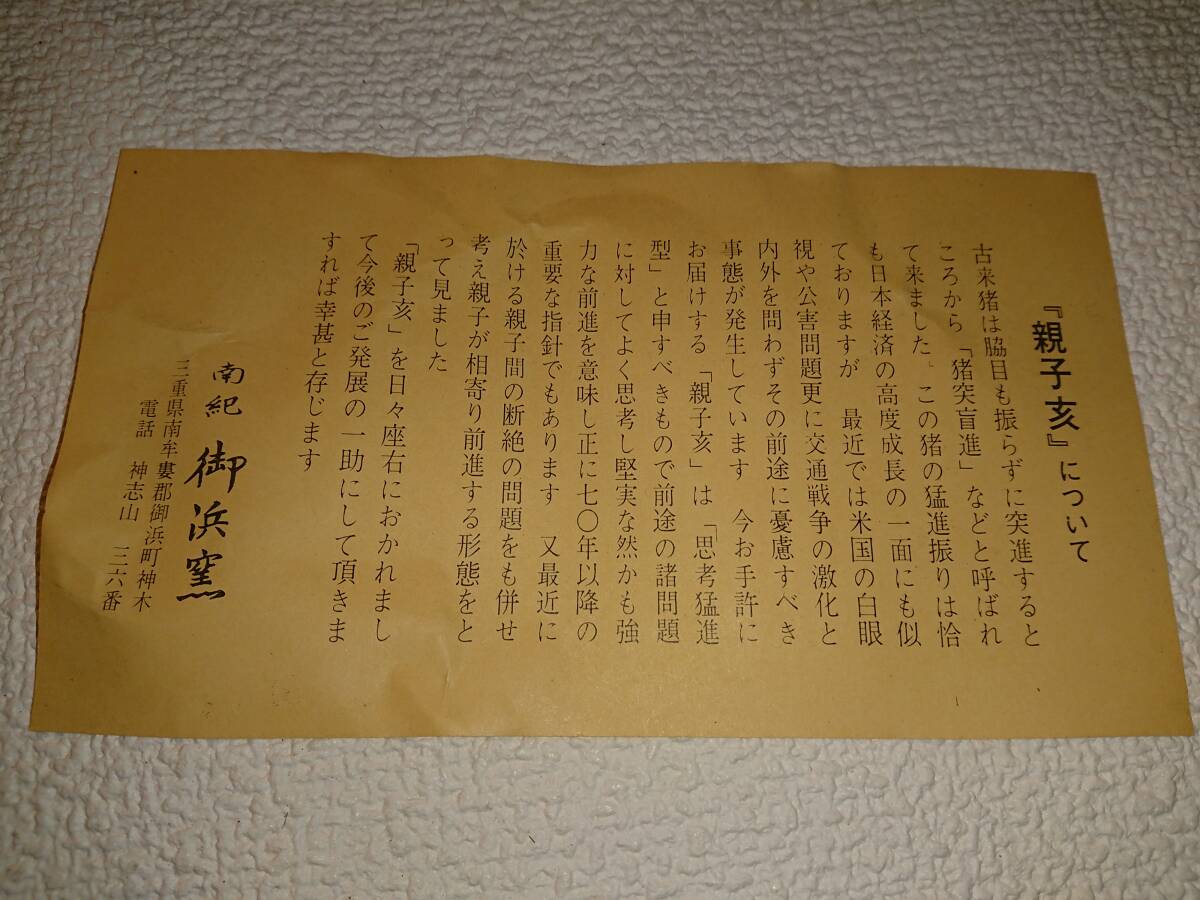 『親子亥』について
古来猪は脇目も振らずに突進すると
ころから「猪突盲進」などと呼ばれ
て来ました。この猪の猛進振りは恰
も日本経済の高度成長の一面にも似
ておりますが 最近では米国の白眼
視や公害問題更に交通戦争の激化と
内外を問わずその前途に憂慮すべき
事態が発生しています 今お手許に
お届けする「親子亥」は「思考猛進
型」と申すべきもので前途の諸問題
に対してよく思考し堅実な然かも強
力な前進を意味し正に七〇年以降の
重要な指針でもあります 又最近に
於ける親子間の断絶の問題をも併せ
考え親子が相寄り前進する形態をと
って見ました
「親子亥」を日々座右におかれまし
て今後のご発展の一助にして頂きま
すれば幸甚と存じます
南紀 御浜窯
三重県南牟婁郡御浜町神木
電話 神志山 三三六番